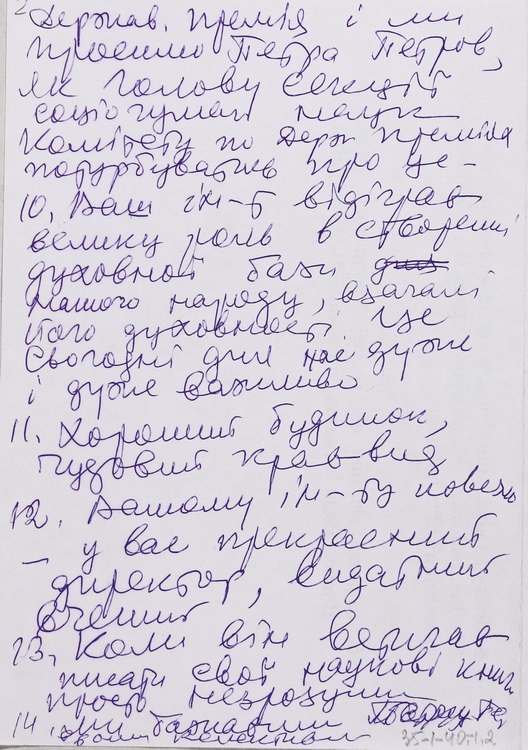 2
Держав. премія і ми
просимо Петра Петров,
як голову секції
соціогуман наук
Комітету по Держ преміях
потурбуватись про це –
10. Ваш ін-т відіграв
велику роль в створенні
духовної бази
нашого народу, взагалі
його духовності. Це
сьогодні для нас дуже
і дуже важливо
11. Хороший будинок,
чудовий краєвид
12. Вашому ін-ту повезло
– у вас прекрасний
директор, видатний
вчений
13. Коли він встигав
писати свої наукові книги
просто незрозуміло
14. ми бажаним
35-1-40.1.2